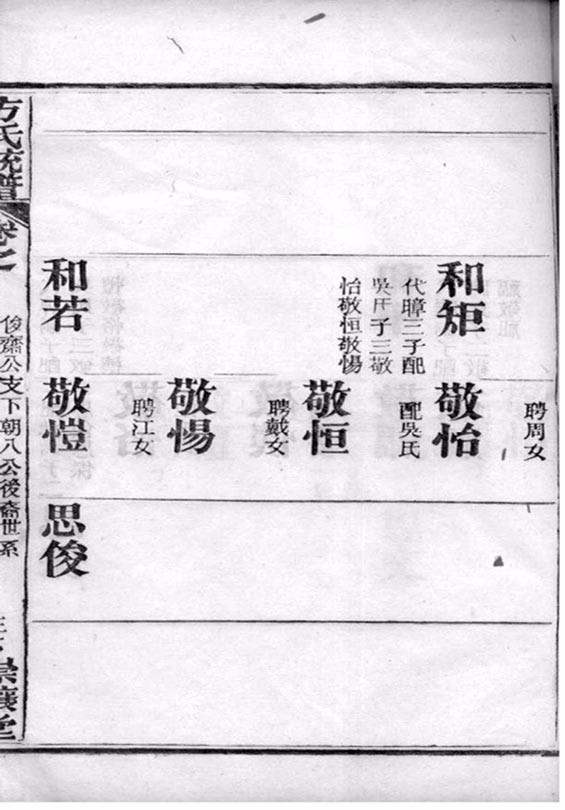 聘周女
和矩
代暲三子配
吳氏子三敬
怡敬恒敬惕
敬怡
配吳氏
敬恒
聘戴女
敬惕
聘江女
和若
敬愷
思俊
方氏統譜
卷之
俊齋公支下朝八公後裔世系
崇讓堂